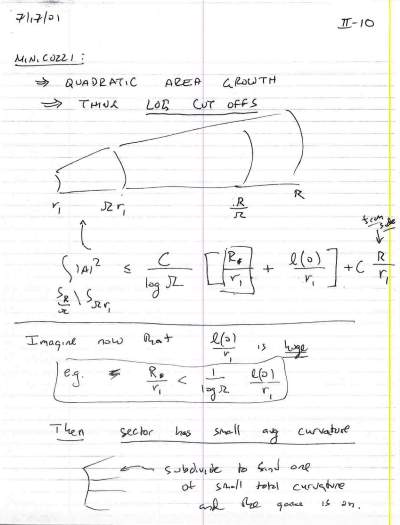 7/17/01
II-10
MINICOZZI:
⇒ QUADRATIC AREA GROWTH
⇒ THINK LOG CUT OFFS
r₁ Ω r₁ R/Ω R
from side
∫ |A|² ≤ C/log Ω [ R₀/r₁ + ℓ(0)/r₁ ] + C R/r₁
S_{R/Ω} \ S_{Ω r₁}
Imagine now that ℓ(0)/r₁ is huge
e.g. R₀/r₁ < 1/log Ω ℓ(0)/r₁
Then sector has small avg curvature
subdivide to find one
of small total curvature
and the game is on.